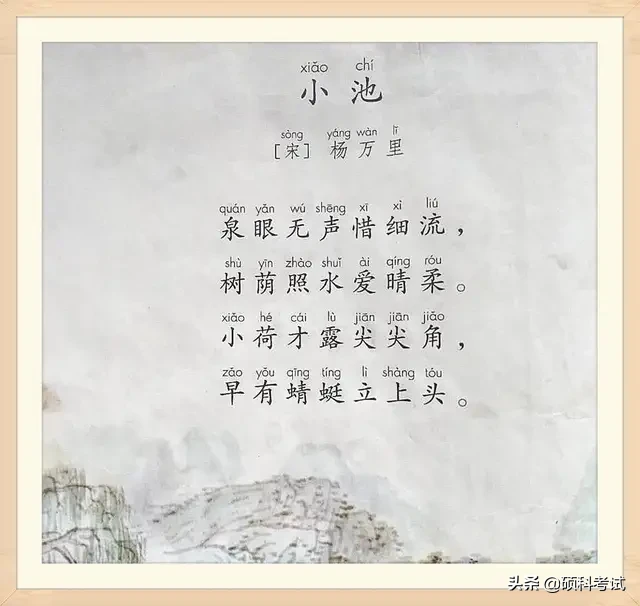 xiǎo chí
小 池
sòng yáng wàn lǐ
[宋] 杨万里
quán yǎn wú shēng xī xì liú
泉眼无声惜细流，
shù yīn zhào shuǐ ài qíng róu
树荫照水爱晴柔。
xiǎo hé cái lù jiān jiān jiǎo
小荷才露尖尖角，
zǎo yǒu qīng tíng lì shàng tóu
早有蜻蜓立上头。
头条 @硕科考试